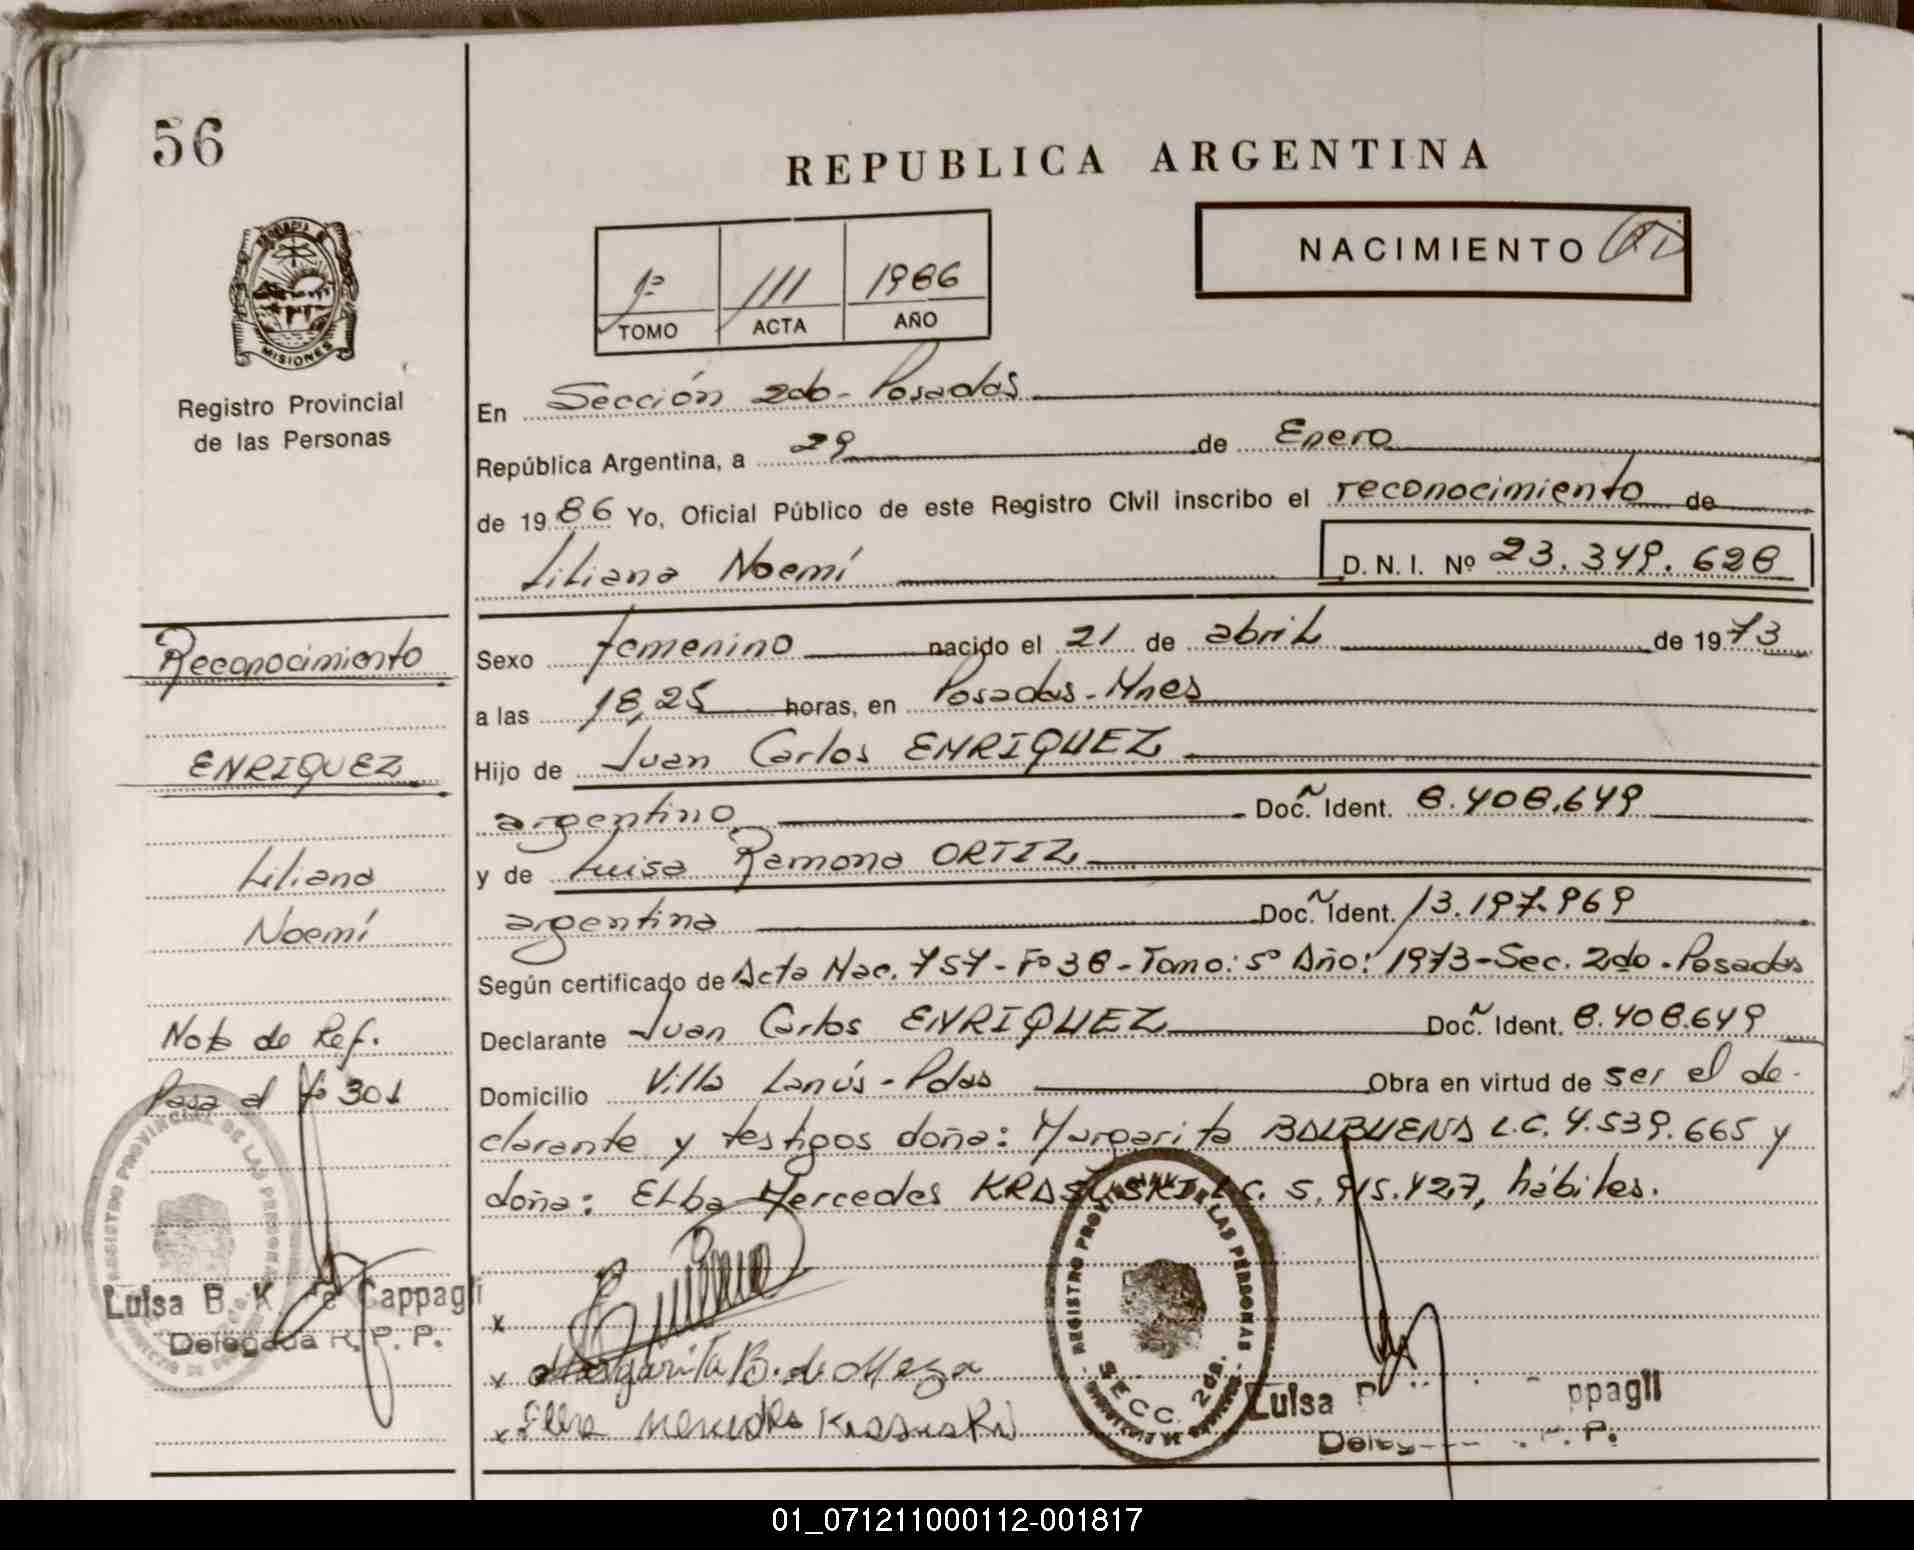 56
REPUBLICA ARGENTINA
PROVINCIA DE
MISIONES
Registro Provincial
de las Personas
1º 111 1986
TOMO ACTA AÑO
NACIMIENTO
En Sección 2do - Posadas
República Argentina, a 29 de Enero
de 1986 Yo, Oficial Público de este Registro Civil inscribo el reconocimiento de
Liliana Noemí D. N. I. Nº 23.349.628
Sexo femenino nacido el 21 de abril de 1973
a las 18,25 horas, en Posadas - Mnes
Hijo de Juan Carlos ENRIQUEZ
argentino Doc. Ident. 8.408.649
y de Luisa Ramona ORTIZ
argentina Doc. Ident. 13.197.969
Según certificado de Acta Nac. 757 - Fº 38 - Tomo: 5º Año: 1973 - Sec. 2do - Posadas
Declarante Juan Carlos ENRIQUEZ Doc. Ident. 8.408.649
Domicilio Villa Lanús - Pdas Obra en virtud de ser el de-
clarante y testigos doña: Margarita BALBUENA L.C. 4.539.665 y
doña: Elba Mercedes KRASUSKI L.C. 5.915.427, hábiles.
x
x Margarita B. de Meza
x Elba Mercedes Krasuski
REGISTRO PROVINCIAL DE LAS PERSONAS
SECC. 2da.
Luisa ppagli
P. P.
Reconocimiento
ENRIQUEZ
Liliana
Noemí
Nota de Ref.
Pasa al fº 301
REGISTRO PROVINCIAL DE LAS PERSONAS
Luisa B. K. de Cappagli
Delegada R. P. P.
01_071211000112-001817